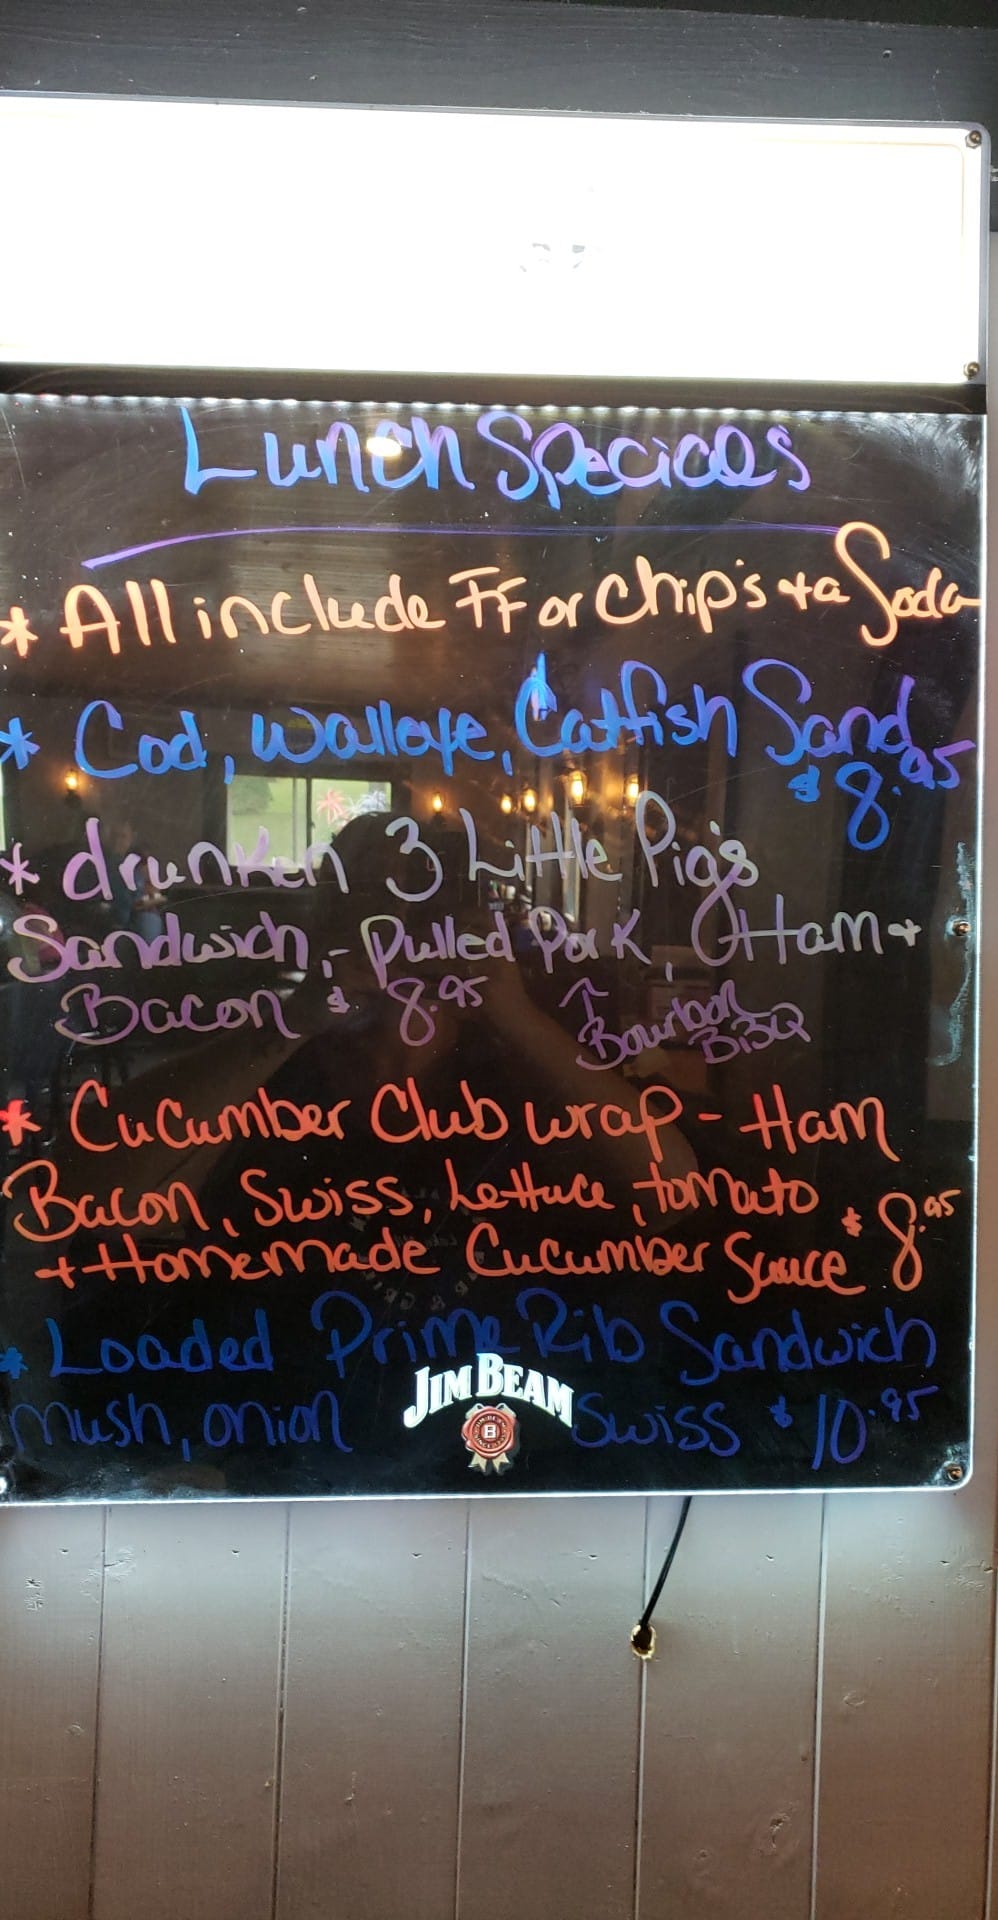 Lunch Specials
* All include FF or Chip's + a Soda
* Cod, Walleye, Catfish Sand
$ 8.95
* drunken 3 Little Pigs
Sandwich,- Pulled Pork, Ham +
Bacon $ 8.95 ↑ Bourbon
BBQ
* Cucumber Club wrap - Ham
Bacon, Swiss, Lettuce, tomato
+ Homemade Cucumber Sauce $ 8.95
* Loaded Prime Rib Sandwich
JIM BEAM
Mush, onion Swiss $ 10.95
B